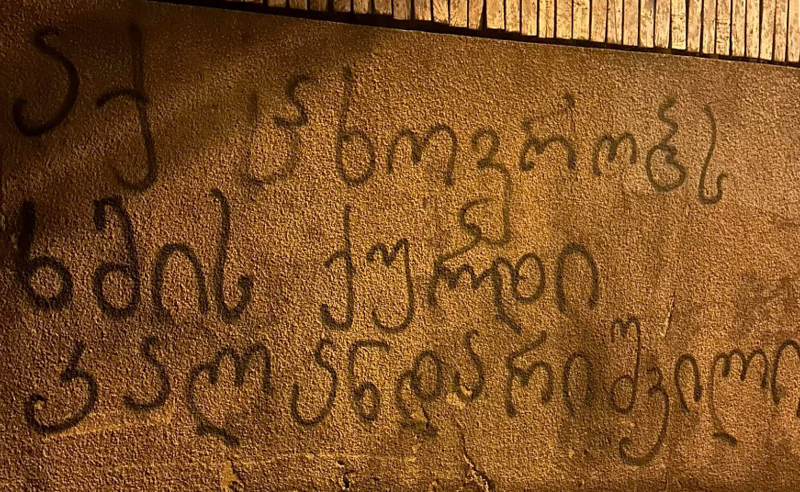 აქ ცხოვრობს
ხმის ქურდი
კალანდარიშვილი